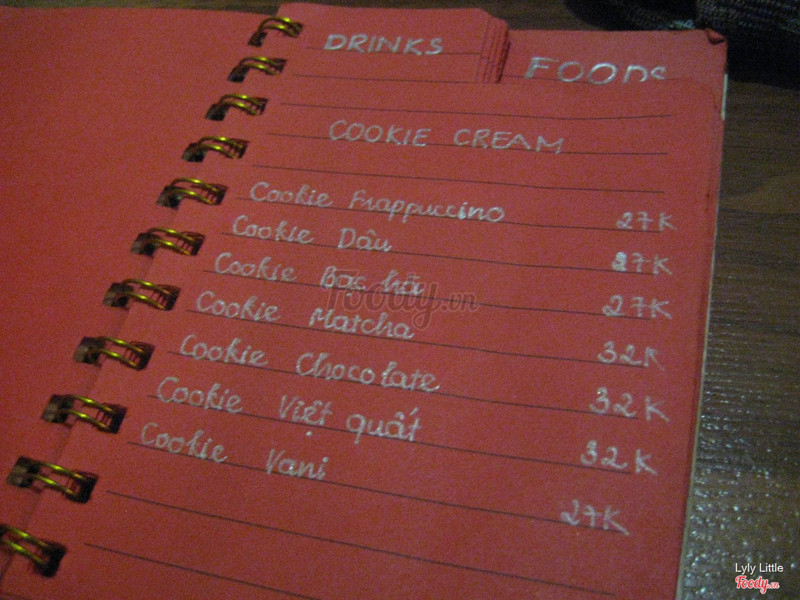 DRINKS
FOODS
COOKIE CREAM
Cookie Frappuccino 27K
Cookie Dâu 27K
Cookie Bạc hà 27K
Cookie Matcha 32K
Cookie Chocolate 32K
Cookie Việt quất 32K
Cookie Vani 27K
Foody.vn
Lyly Little
Foody.vn